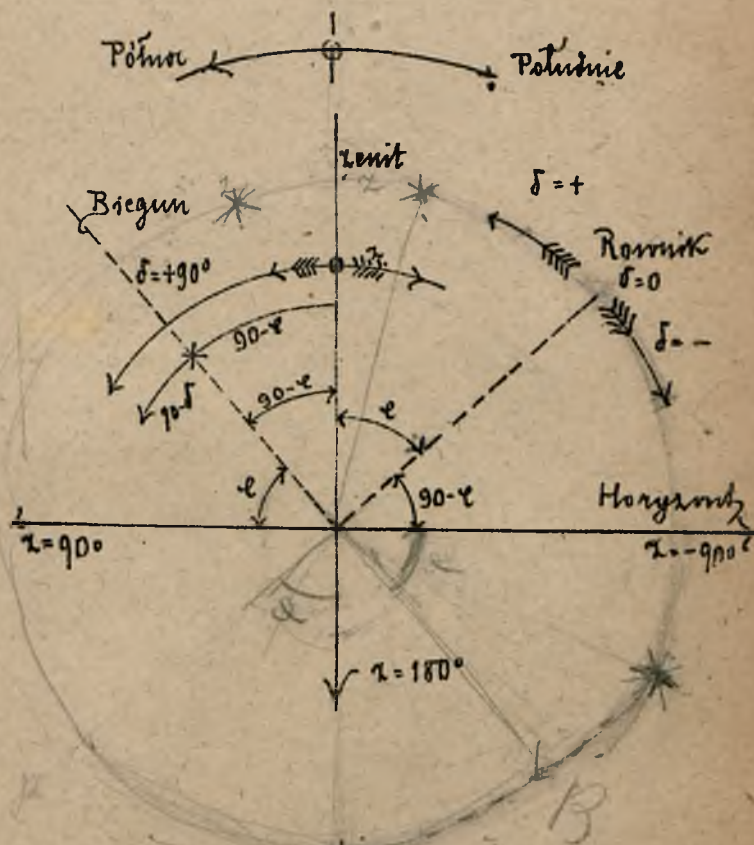 Północ
Południe
Zenit
z
δ=+
Biegun
Rownik
δ=0
δ=+90°
z
δ=-
90-φ
90-δ
90-φ
φ
φ
90-φ
Horyzont
z=90°
z=-90°
φ
φ
z=180°
B